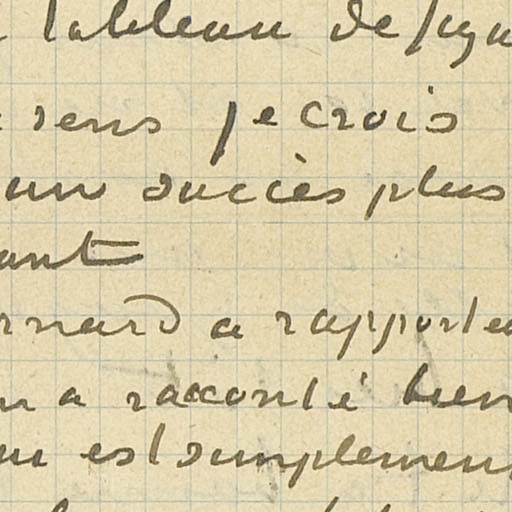 tableau de
sens je crois
un succès plus
ant
rnard a rapporté
a raconté bien
est simplement